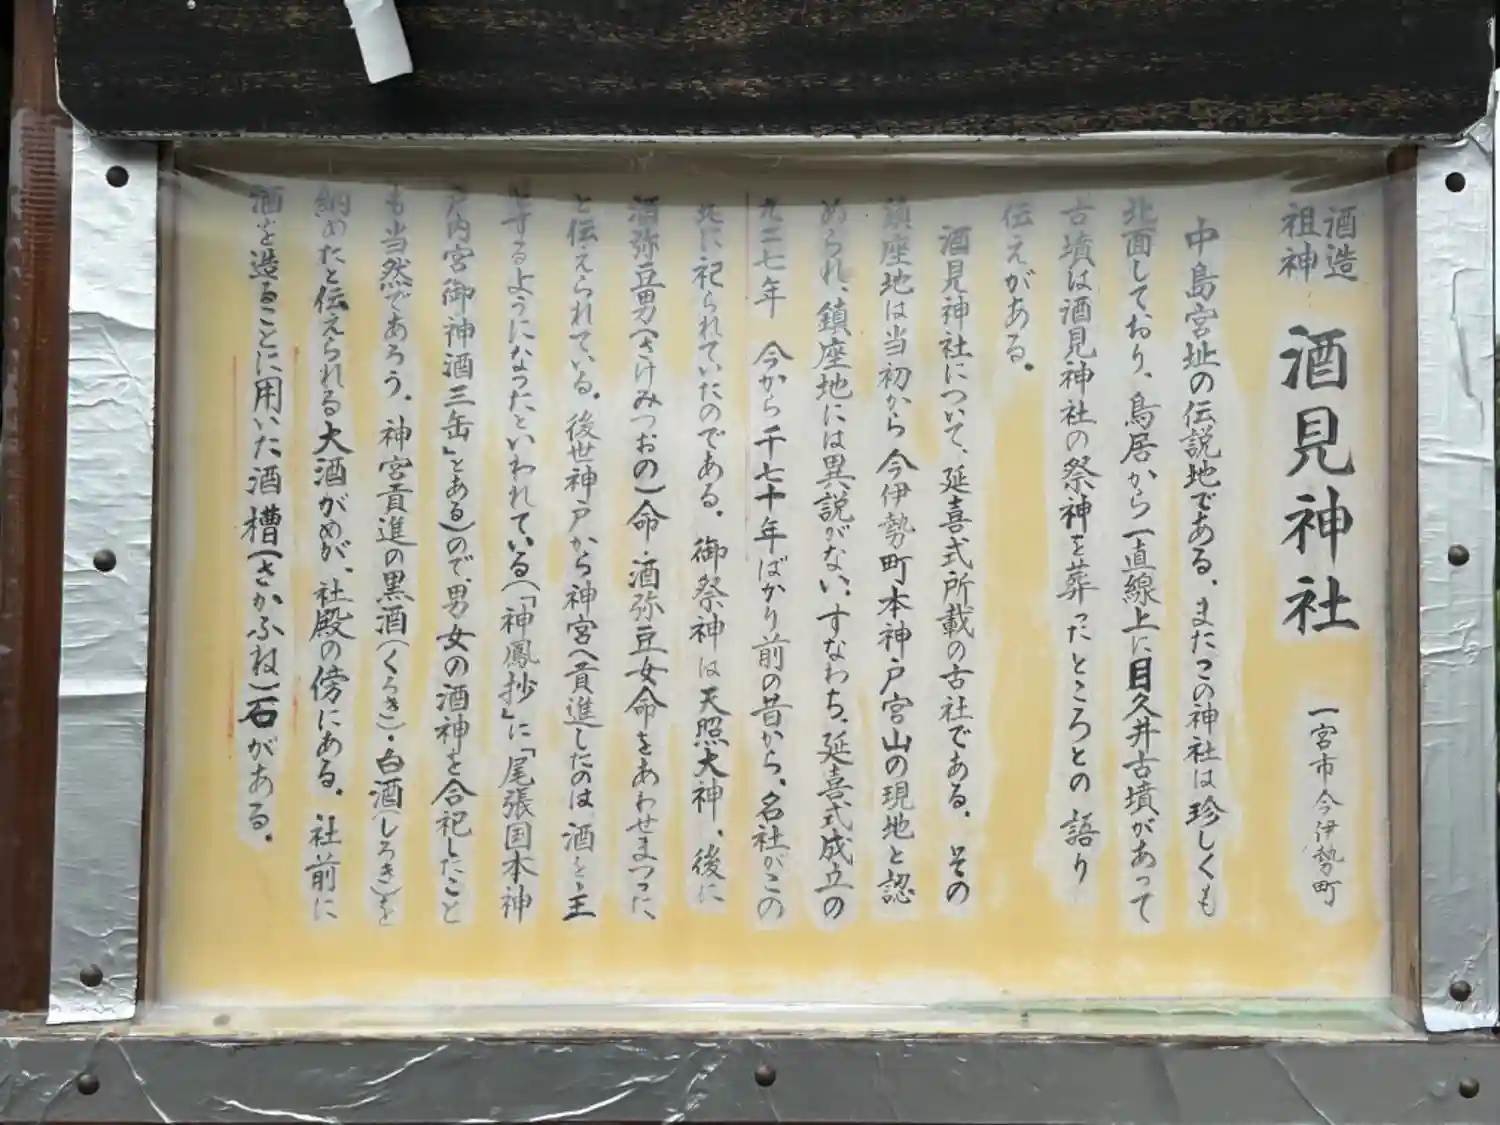 酒造
祖神
酒見神社
一宮市今伊勢町
中島宮址の伝説地である。またこの神社は珍しくも
北面しており、鳥居から一直線上に目久井古墳があって
古墳は酒見神社の祭神を葬ったところとの語り
伝えがある。
酒見神社について、延喜式所載の古社である。その
鎮座地は当初から今伊勢町本神戸宮山の現地と認
められ、鎮座地には異説がない。すなわち、延喜式成立の
九二七年 今から千七十年ばかり前の昔から、名社がこの
地に祀られていたのである。御祭神は天照大神、後に
酒弥豆男(さけみつおの)命・酒弥豆女命をあわせまつつた
と伝えられている。後世神戸から神宮へ貢進したのは酒を主
とするようになつたといわれている(「神鳳抄」に「尾張国本神
戸内宮御神酒三缶」とある)ので、男女の酒神を合祀したこと
も当然であろう。神宮貢進の黒酒(くろき)・白酒(しろき)を
納めたと伝えられる大酒がめが、社殿の傍にある。社前に
酒を造ることに用いた酒槽(さかふね)石がある。